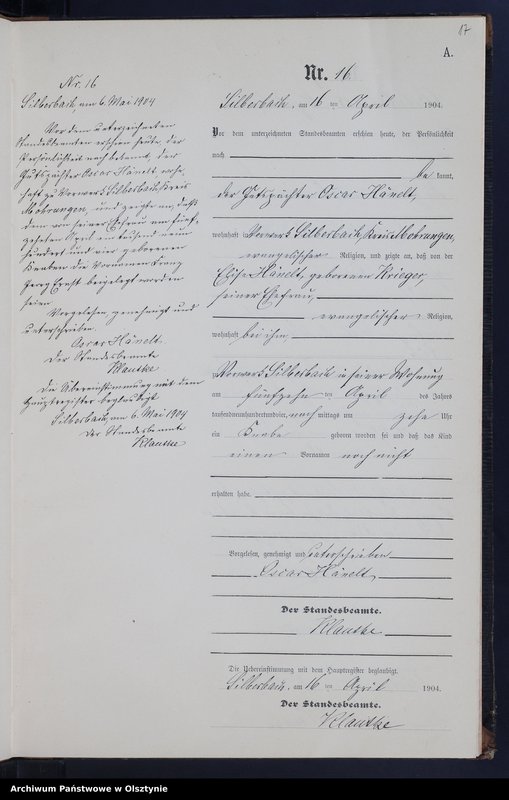 17
A.
Nr. 16
Silberbach, am 16 ten April 1904.
Vor dem unterzeichneten Standesbeamten erschien heute, der Persönlichkeit
nach
be kannt,
der Gutspächter Oscar Hänelt,
wohnhaft in Vorwerk Silberbach, Kreis Mohrungen,
evangelischer Religion, und zeigte an, daß von der
Elise Hänelt, geborenen Krieger,
seiner Ehefrau,
evangelischer Religion,
wohnhaft bei ihm
Vorwerk Silberbach in seiner Wohnung
am fünfzehn ten April des Jahres
tausendneunhundertundvier, nach mittags um zehn Uhr
ein Knabe geboren worden sei und daß das Kind
einen Vornamen noch nicht
erhalten habe.
Vorgelesen, genehmigt und unterschrieben
Oscar Hänelt
Der Standesbeamte.
Klautke
Die Uebereinstimmung mit dem Hauptregister beglaubigt.
Silberbach, am 16 ten April 1904.
Der Standesbeamte.
Klautke
Nr. 16
Silberbach, am 6. Mai 1904
Vor dem unterzeichneten
Standesbeamten erschien heute der
Persönlichkeit nach bekannt, der
Gutspächter Oscar Hänelt, wohn-
haft zu Vorwerk Silberbach, Kreis
Mohrungen, und zeigte an, daß
dem von seiner Ehefrau am fünf-
zehnten April ein tausend neun
hundert und vier geborenen
Knaben die Vornamen Franz
Georg Ernst beigelegt worden
seien
Vorgelesen, genehmigt und
unterschrieben
Oscar Hänelt.
Der Standesbeamte
Klautke
Die Übereinstimmung mit dem
Hauptregister beglaubigt
Silberbach, am 6. Mai 1904
Der Standesbeamte
Klautke
Archiwum Państwowe w Olsztynie